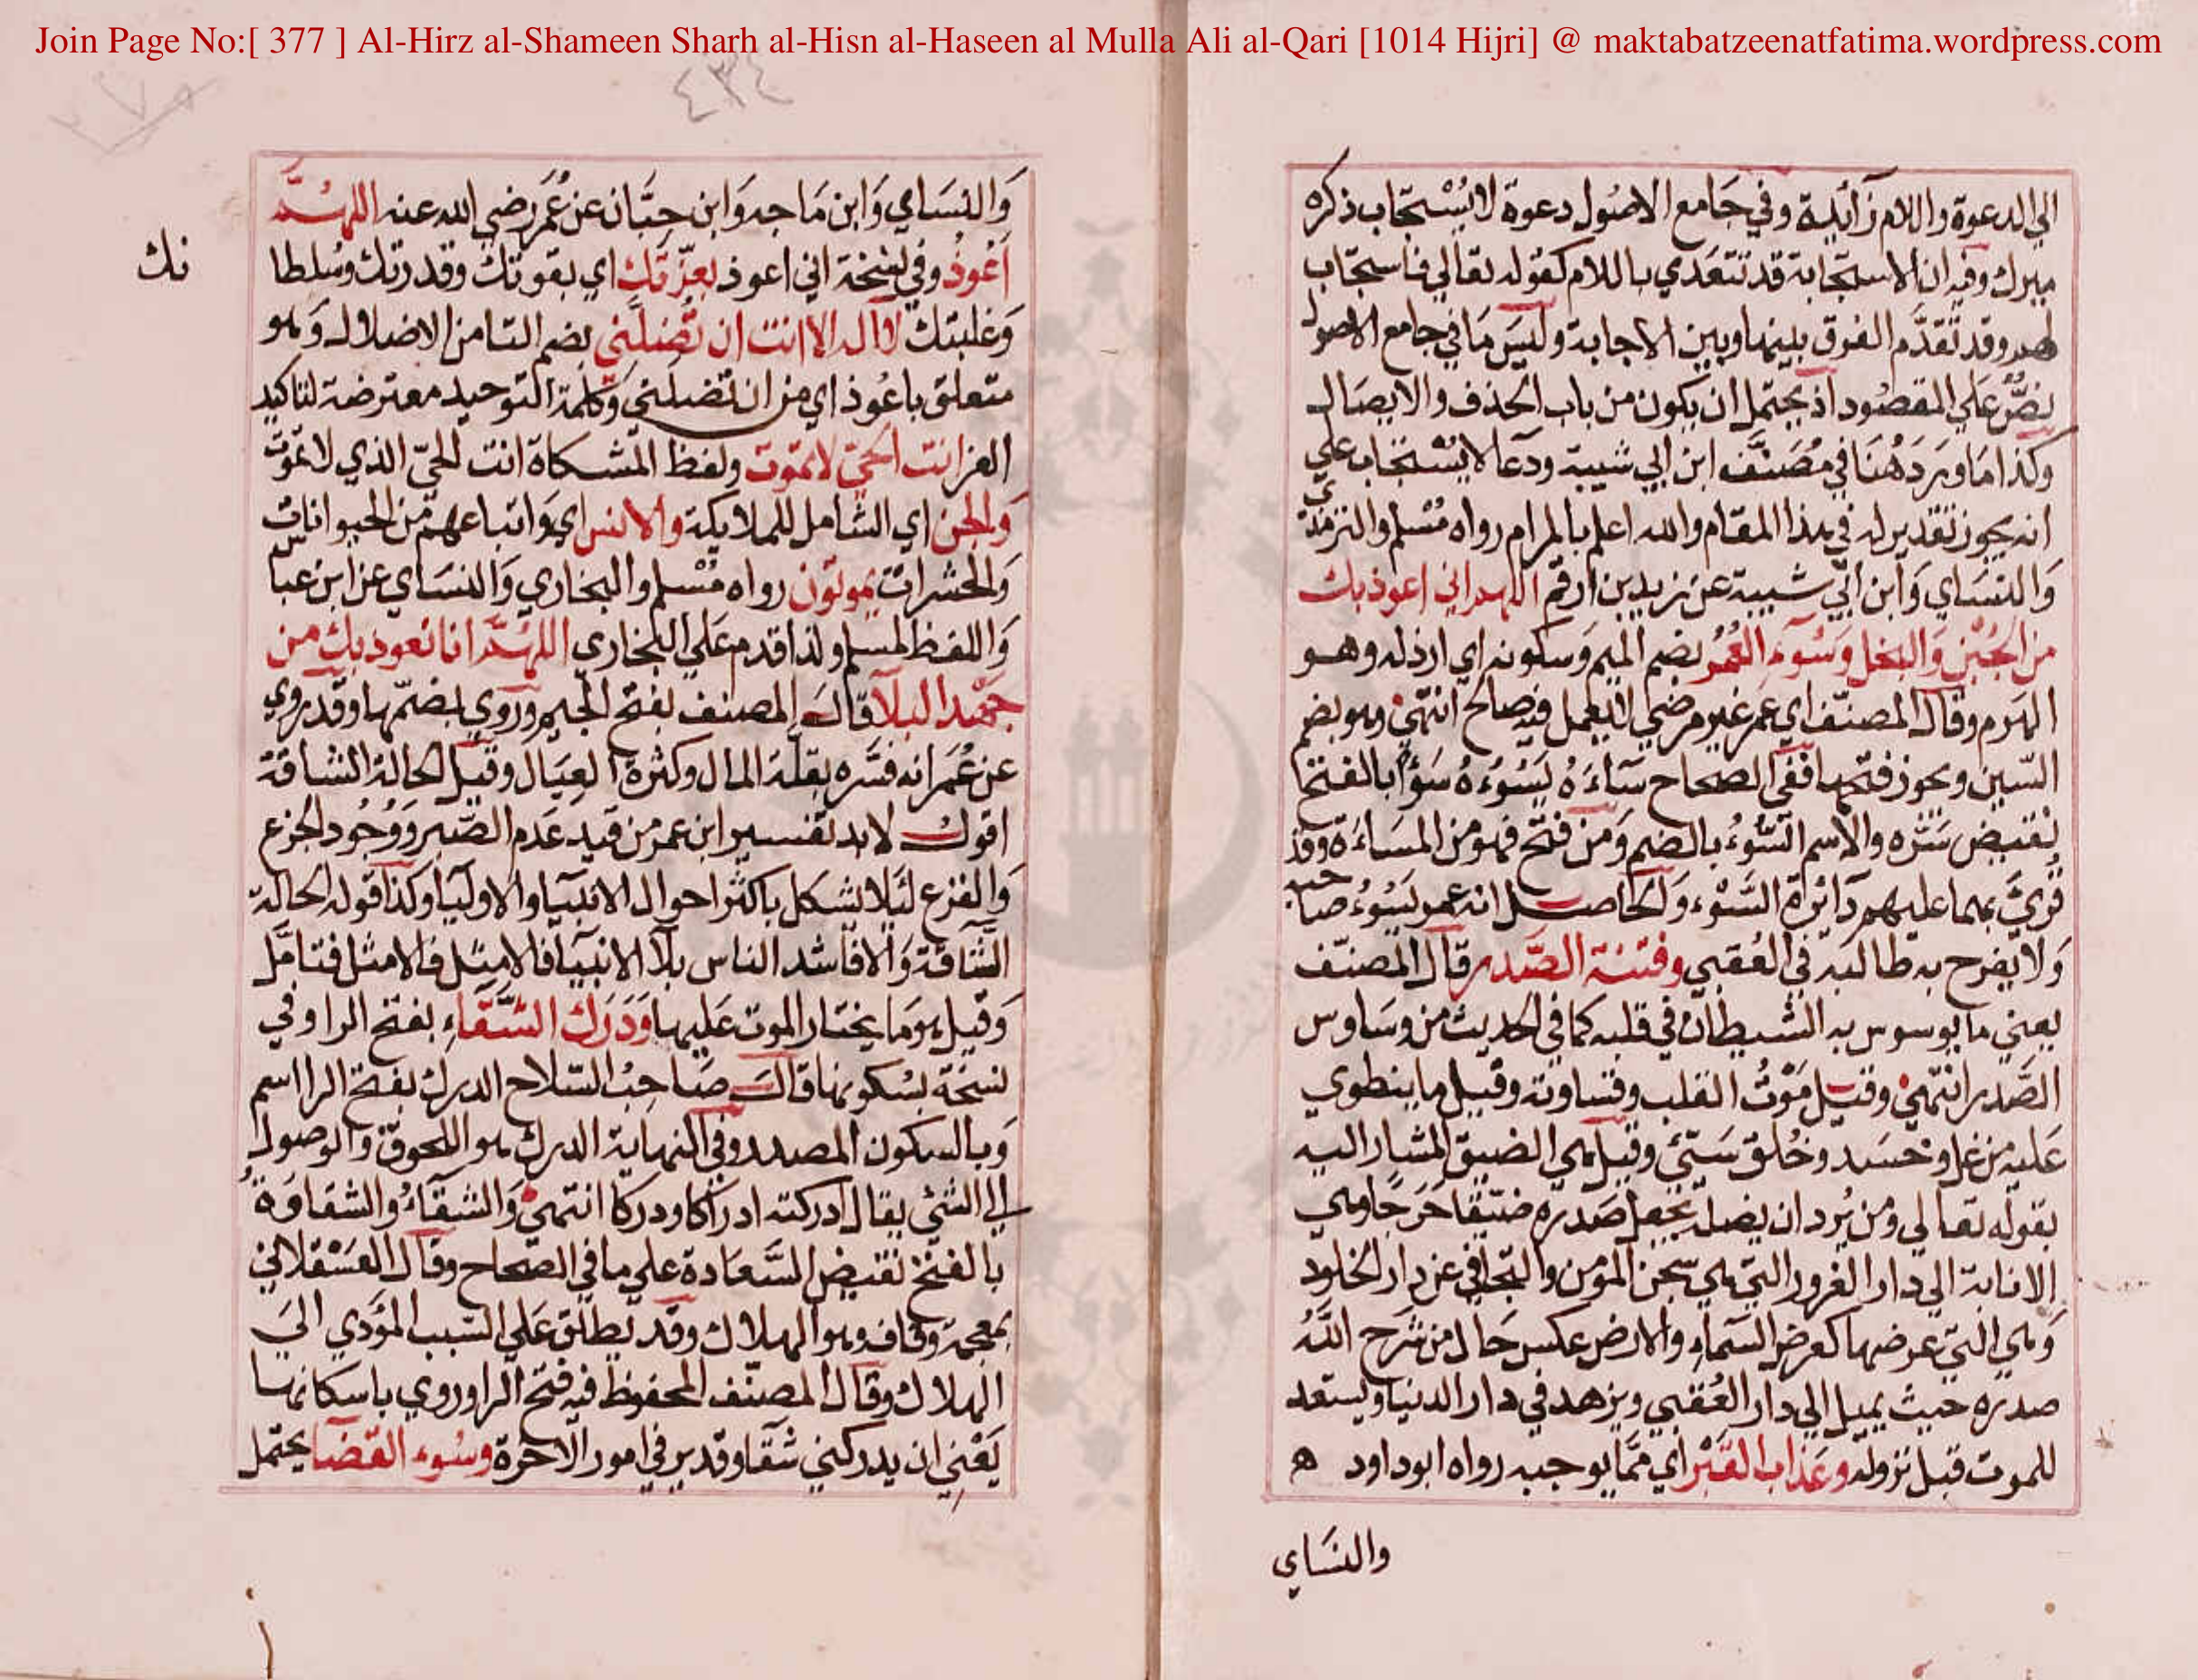 Join Page No:[ 377 ] Al-Hirz al-Shameen Sharh al-Hisn al-Haseen al Mulla Ali al-Qari [1014 Hijri] @ maktabatzeenatfatima.wordpress.com
٤٣٤
الي الدعوة واللام زائدة وفي جَامع الاصُول دعوة لا يُسْتجَاب ذكره
ميرك وفيه ان الاستجابة قد تتعَدي باللام كقوله تعالي فاستجاب
لهم وقد تقدَّم الفرق بينها وبين الاجابة وليسَ مَا في جامع الاصول
نصٌّ عَلي المقصُود اذ يحتمل ان يكون من باب الحذف والايصَال
وكذا مَا ورَد هُنَا في مُصَنَّف ابن ابي شيبة ودعَا لا يُسْتجَاب علي
انه يجوز تقدير له في هذا المقام والله اعلم بالمرام رواه مُسْلم والترمذي
وَالنسَاي وَابن ابي شيبة عن زيد بن ارقم اللهم اني اعوذ بك
من الجُبْن وَالبخل وَسُوءِ العُمُر بضم الميم وَسكونه اي ارذله وهو
الهرم وقال المصنّف اي عمر غير مرضي لا يعمل فيه صالح انتهيٰ وهو بضم
السّين ويجوز فتحها ففي الصحاح سَآءَهُ يَسُوُءهُ سَوْأ بالفتح
نقيض سَرّه والاسم السُّوُءُ بالضم وَمن فتح فهو من المسَاءَة وقد
قُرئَ بهما عليهم دآئرة السَّوْء وَالحاصل انه عمر يَسُوُءُ صاحبه
وَلا يفرح به طالبه في العُقبي وفتنة الصّدر قال المصنّف
يعني ما يوسوس به الشيطان في قلبه كما في الحديث من وسَاوس
الصَّدر انتهيٰ وقيل مَوْتُ القلب وقساوته وقيل ما ينطوي
عَليه من غل وحَسَد وخُلق سَيّئ وقيل هي الضيق المشار اليه
بقوله تعالي ومن يُرد ان يضله يجعل صَدره ضيّقا حَرَجًا وهي
الانابة الي دار الغرور التي هي سِجن المؤمن والتجافي عن دار الخلود
وَهي التي عرضها كعرض السّمآءِ والارض عكس حَال من شَرح اللّهُ
صدره حيث يميل الي دار العُقبي ويزهد في دار الدنيا ويستعد
للموت قبل نزوله وعَذاب القبْر اي ممّا يوجبه رواه ابو داود ه
والنسَاي
وَالنسَاي وَابن مَاجه وَابن حِبَّان عن عُمَر رضي الله عنه اللهُمَّ
اَعُوذُ وفي نسخة اني اعوذ بعزّتك اي بقوتك وقدرتك وسُلطا
نك
وَغلبتك لا اله الا انت ان تُضلَّني بضم التا من الاضلال وَهو
متعلق باعُوذ اي من ان تضلني وَكلمة التوحيد معترضة لتاكيد
العز انت الحيّ لا تموت ولفظ المشكاة انت الحيّ الذي لا تموت
وَالجن اي الشامل للملايكة والانس اي وَاتباعهم من الحيوانات
وَالحشرات يموتون رواه مُسْلم والبخاري وَالنسَاي عن ابن عباس
وَاللفظ لمسلم ولذا قدم عَلي البخاري اللهُمَّ انا نعوذ بك من
جَهْد البلآ قال المصنف بفتح الجيم وَرُوي بضمّها وقد روي
عن عُمَر انه فسَّره بقلّة المال وكثرة العِيَال وقيل الحالة الشاقة
اقول لابد لتفسير ابن عمر من قيد عَدم الصَّبر وَوُجُود الجزع
وَالفزع لئلا يشكل باكثر احوال الانبيآ والاوليآ وكذا قوله الحالة
الشَّاقة وَالا فاشد الناس بلآ الانبيآ فالامثل فالامثل فتامّل
وَقيل هو مَا يختار الموت عَليها وَدَرَك الشَّقَآءِ بفتح الرا وفي
نسخة بسُكونها قال صَاحِبُ السّلاح الدرك بفتح الرا اسم
وَبالسكون المصدر وفي النهاية الدرك هو اللحوق وَالوصول
الي الشئ يقال ادركته ادراكا ودركا انتهيٰ وَالشقآءُ والشقاوَةُ
بالفتح نقيض السَّعَادة علي ما في الصحاح وقال العَسْقلاني
بمعجمة وقاف وهو الهلاك وقد يطلق عَلي السّبب المؤدي الَي
الهلاك وقال المصنّف المحفوظ فيه فتح الرا وروي باسكانها
يَعْني ان يدركني شقاوة دير في امور الاخرة وسُوء القضا يحتمل